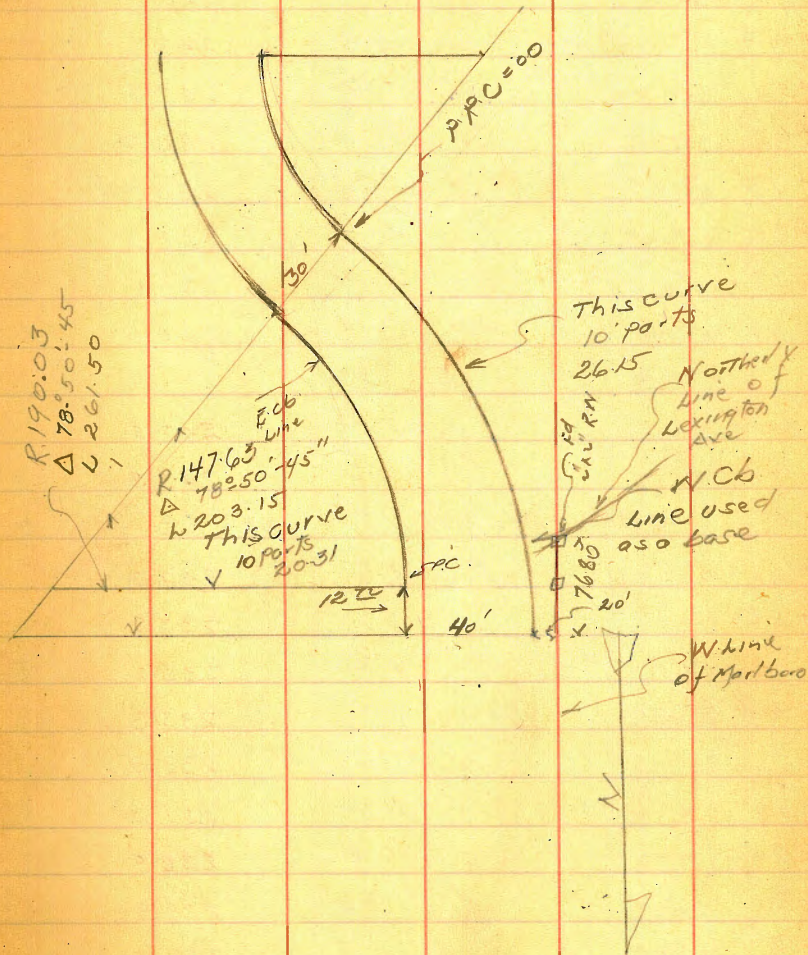 P.R.C = 00
30'
This curve
10' parts
26.15
Northerly
Line of
Lexington
Ave
Fd
2"x2" R.W
W. Cb
Line used
as a base
R. 190.03
Δ 78°-50'-45
L 261.50
E. Cb
Line
R 147.63
Δ 78°-50'-45"
L 203.15
This curve
10 parts
20.31
12
40'
76.80
20'
W. Line
of Marlboro
N